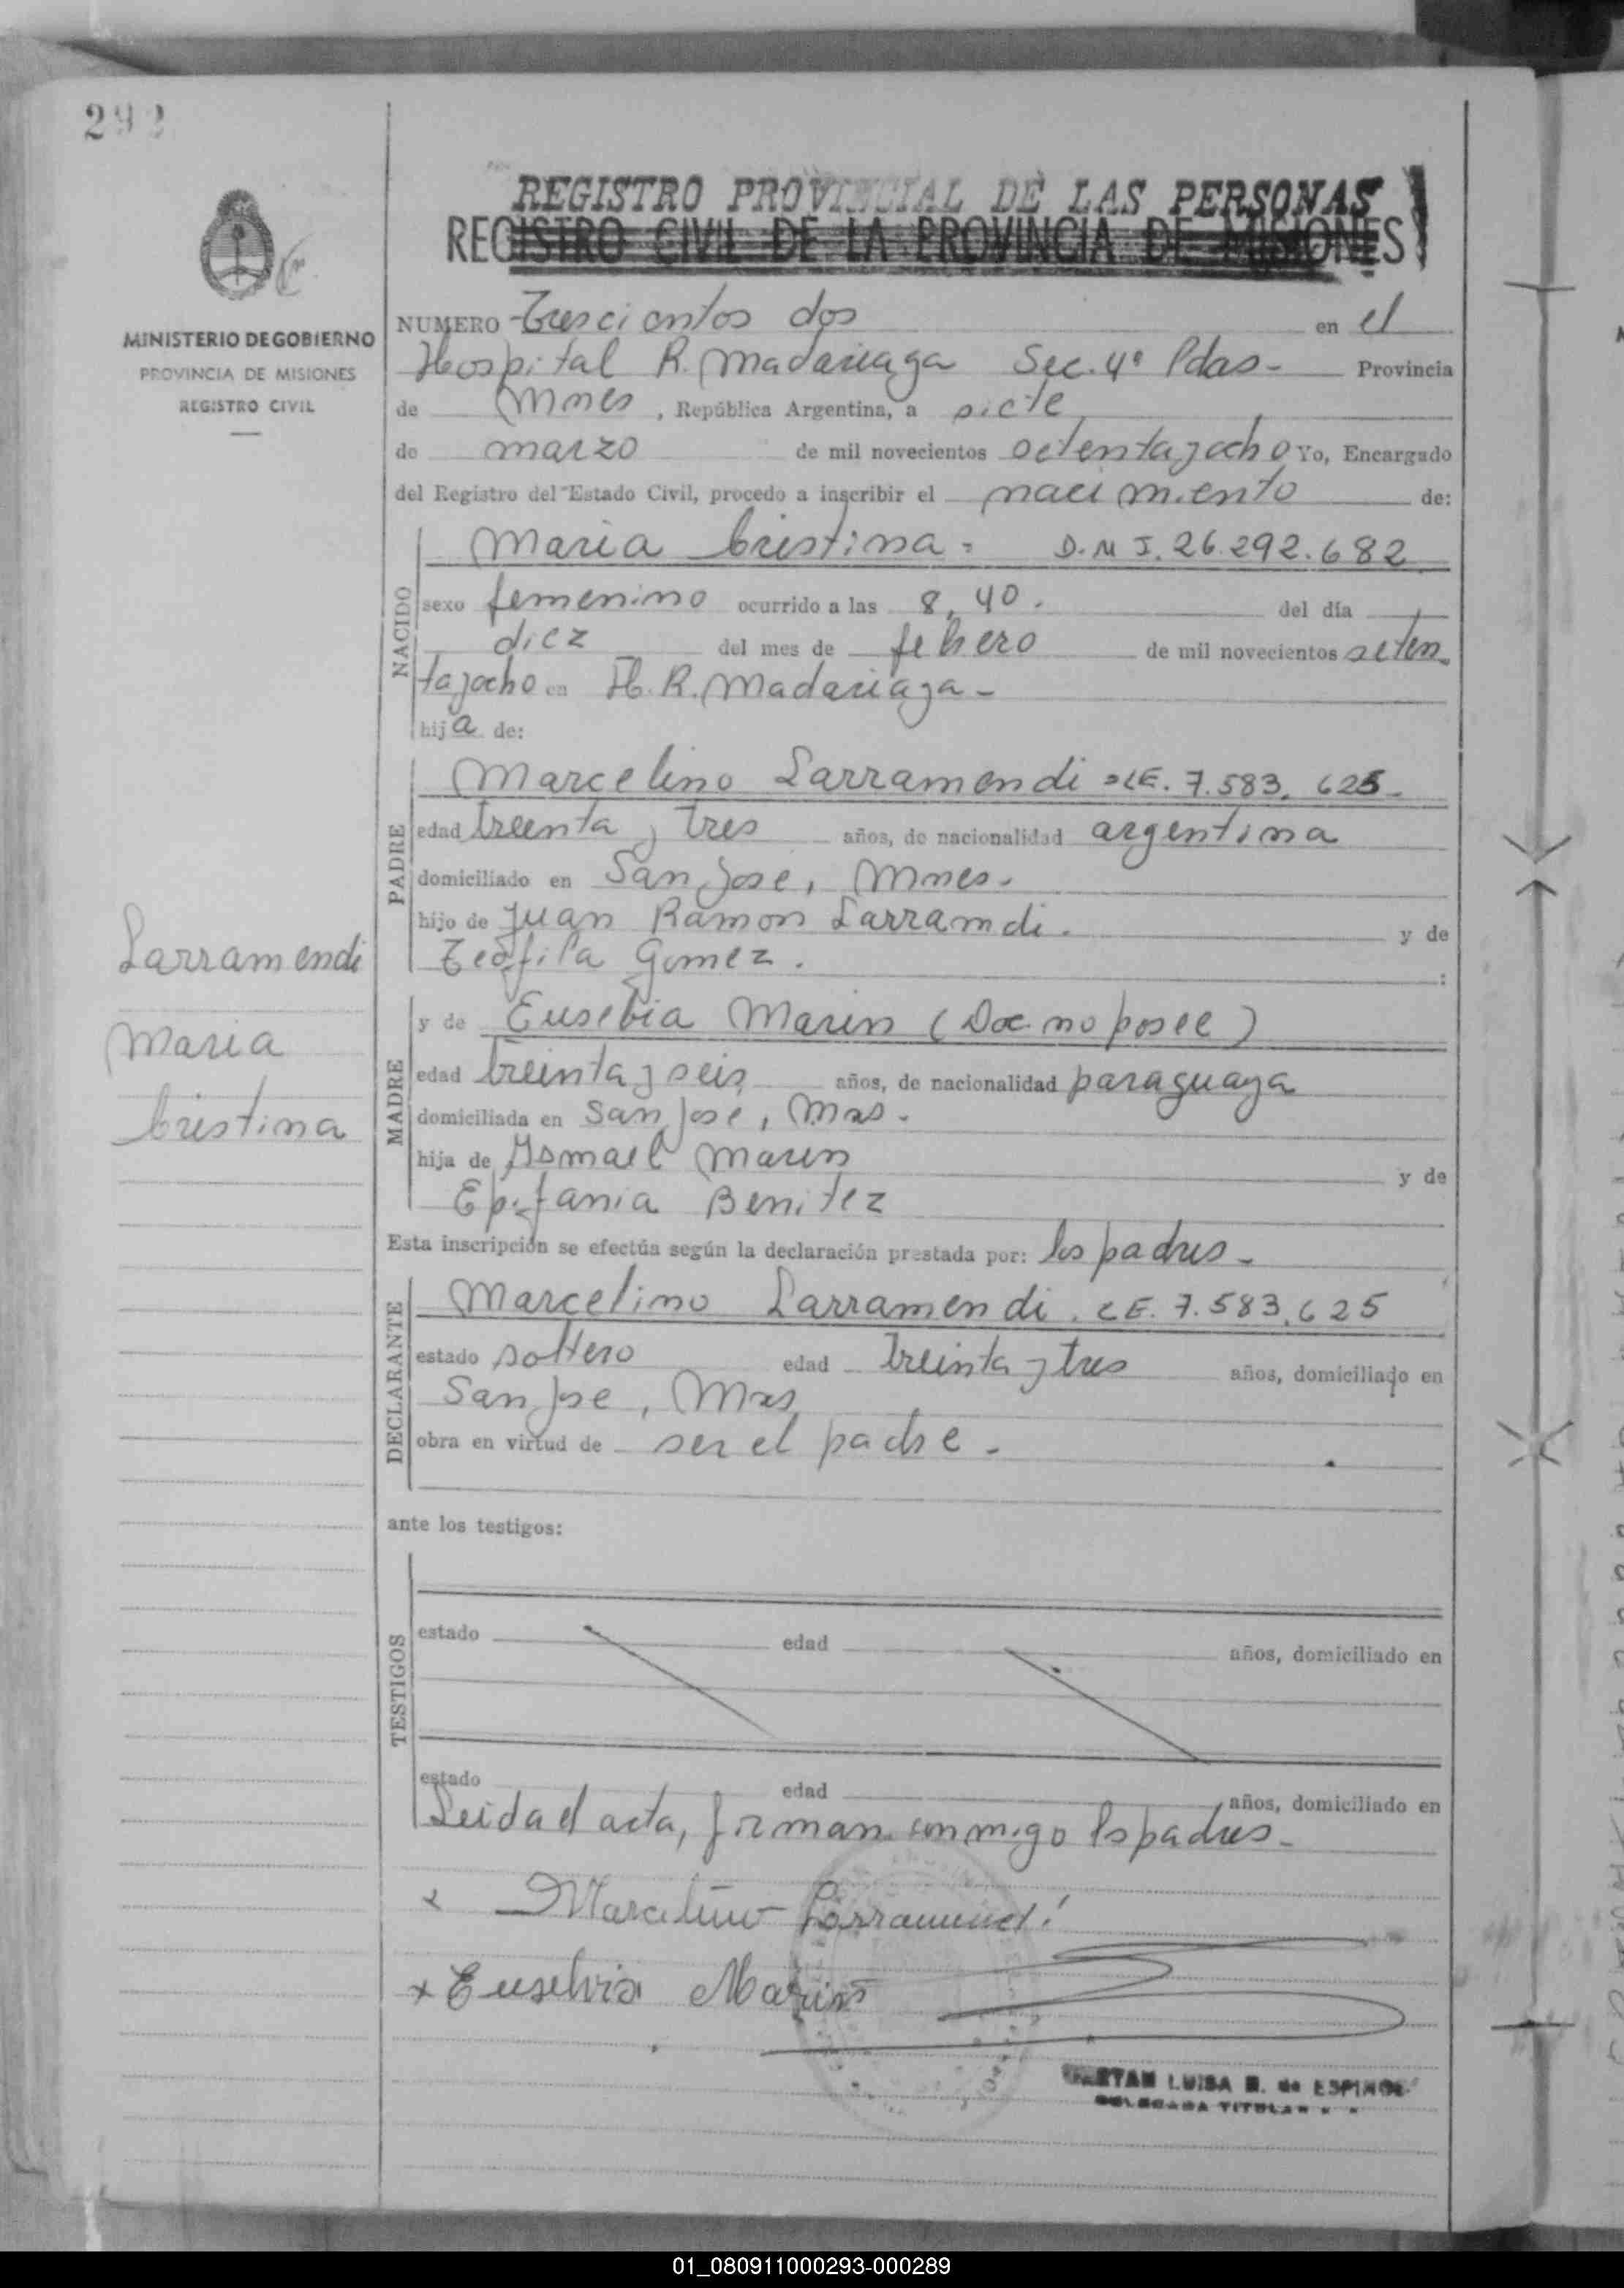 292
REGISTRO PROVINCIAL DE LAS PERSONAS
REGISTRO CIVIL DE LA PROVINCIA DE MISIONES
MINISTERIO DE GOBIERNO
PROVINCIA DE MISIONES
REGISTRO CIVIL
NUMERO Trescientos dos en el
Hospital R. Madariaga Sec. 4º Pdas- Provincia
de Mnes, República Argentina, a siete
de marzo de mil novecientos setentayocho Yo, Encargado
del Registro del Estado Civil, procedo a inscribir el nacimiento de:
NACIDO
Maria Cristina = D.N I. 26.292.682
sexo femenino ocurrido a las 8,40. del día
diez del mes de febrero de mil novecientos seten
tayocho en H. R. Madariaga-
hija de:
PADRE
Marcelino Larramendi = LE. 7.583.625-
edad treinta y tres años, de nacionalidad argentina
domiciliado en San Jose, Mnes.
hijo de Juan Ramon Larramdi. y de
Teofila Gomez. :
Larramendi
Maria
Cristina
MADRE
y de Eusebia Marin (Doc. no posee)
edad treinta y seis años, de nacionalidad paraguaya
domiciliada en San Jose, Mns.
hija de Ysmael Marin y de
Epifania Benitez
Esta inscripción se efectúa según la declaración prestada por: los padres-
DECLARANTE
Marcelino Larramendi. LE. 7.583.625
estado soltero edad treinta y tres años, domiciliado en
San Jose, Mns
obra en virtud de ser el padre.
ante los testigos:
TESTIGOS
estado edad años, domiciliado en
estado edad años, domiciliado en
Leida el acta, firman conmigo los padres-
x Marcelino Larramendi
x Euselvia Marin
LUISA de ESPINOLA
DELEGADA TITULAR
01_080911000293-000289